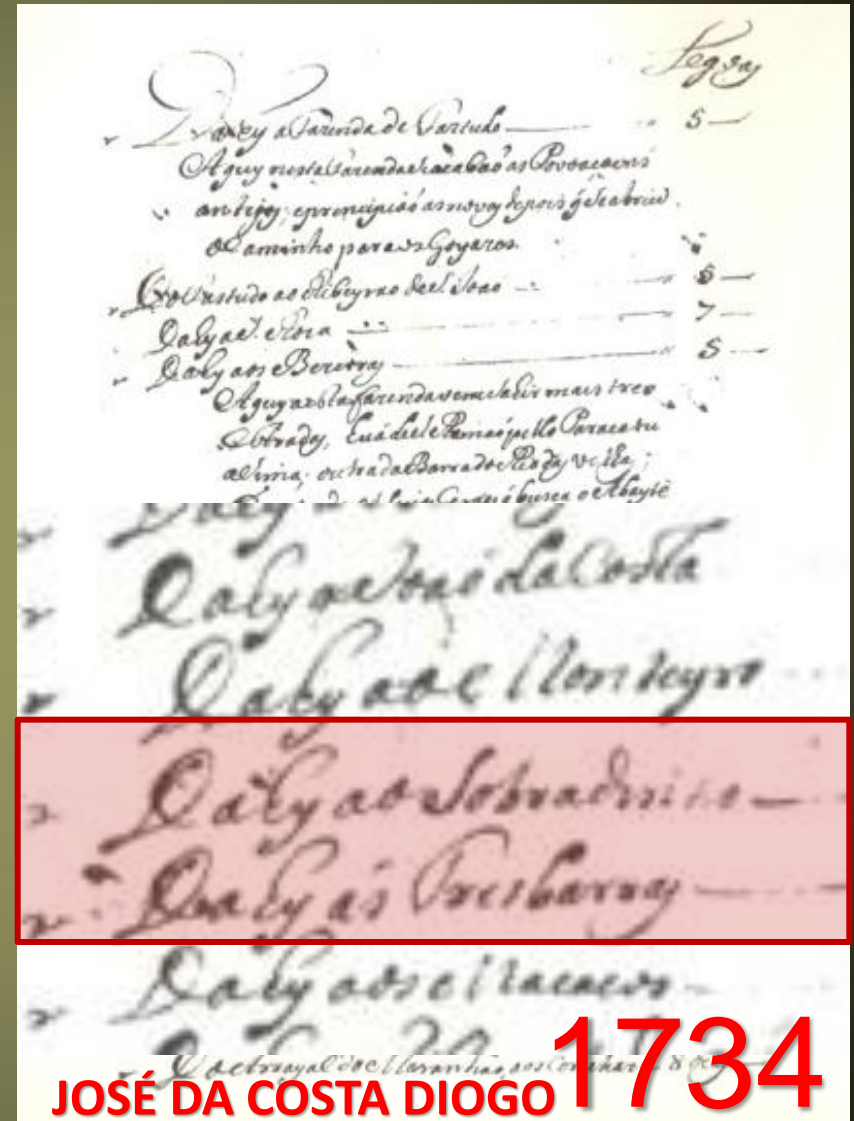 Legoas
Daly a Fazenda de Pastudo 5
Aquy nesta fazenda se acabaõ as Povoacoens
antigas, e principiaõ as novas depois q̃ se abrio
o Caminho para os Goyazes.
Do Pastudo ao Ribeyrao de S. Joao 6
Daly a S. Roza 7
Daly aos Bezerros 5
Aquy nesta fazenda vem sahir mais tres
Estradas, pello Paracatu
asima; outra da Barra do Rio das velhas;
busca o Abayté
Daly a Joaõ da Costa
Daly ao Monteyro
Daly ao Sobradinho
Daly ás Tres barras
Daly aos Macacos
Do Arrayal do Maranhaõ aos
JOSÉ DA COSTA DIOGO 1734